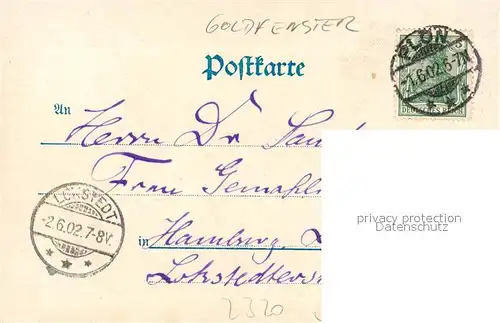 GOLDFENSTER
PLÖN
1.6.02.6-7N.
DEUTSCHES REICH
Postkarte
An
Herrn Dr
Frau
in Hamburg
LOKSTEDT
-2.6.02.7-8V.
privacy protection
Datenschutz
2320